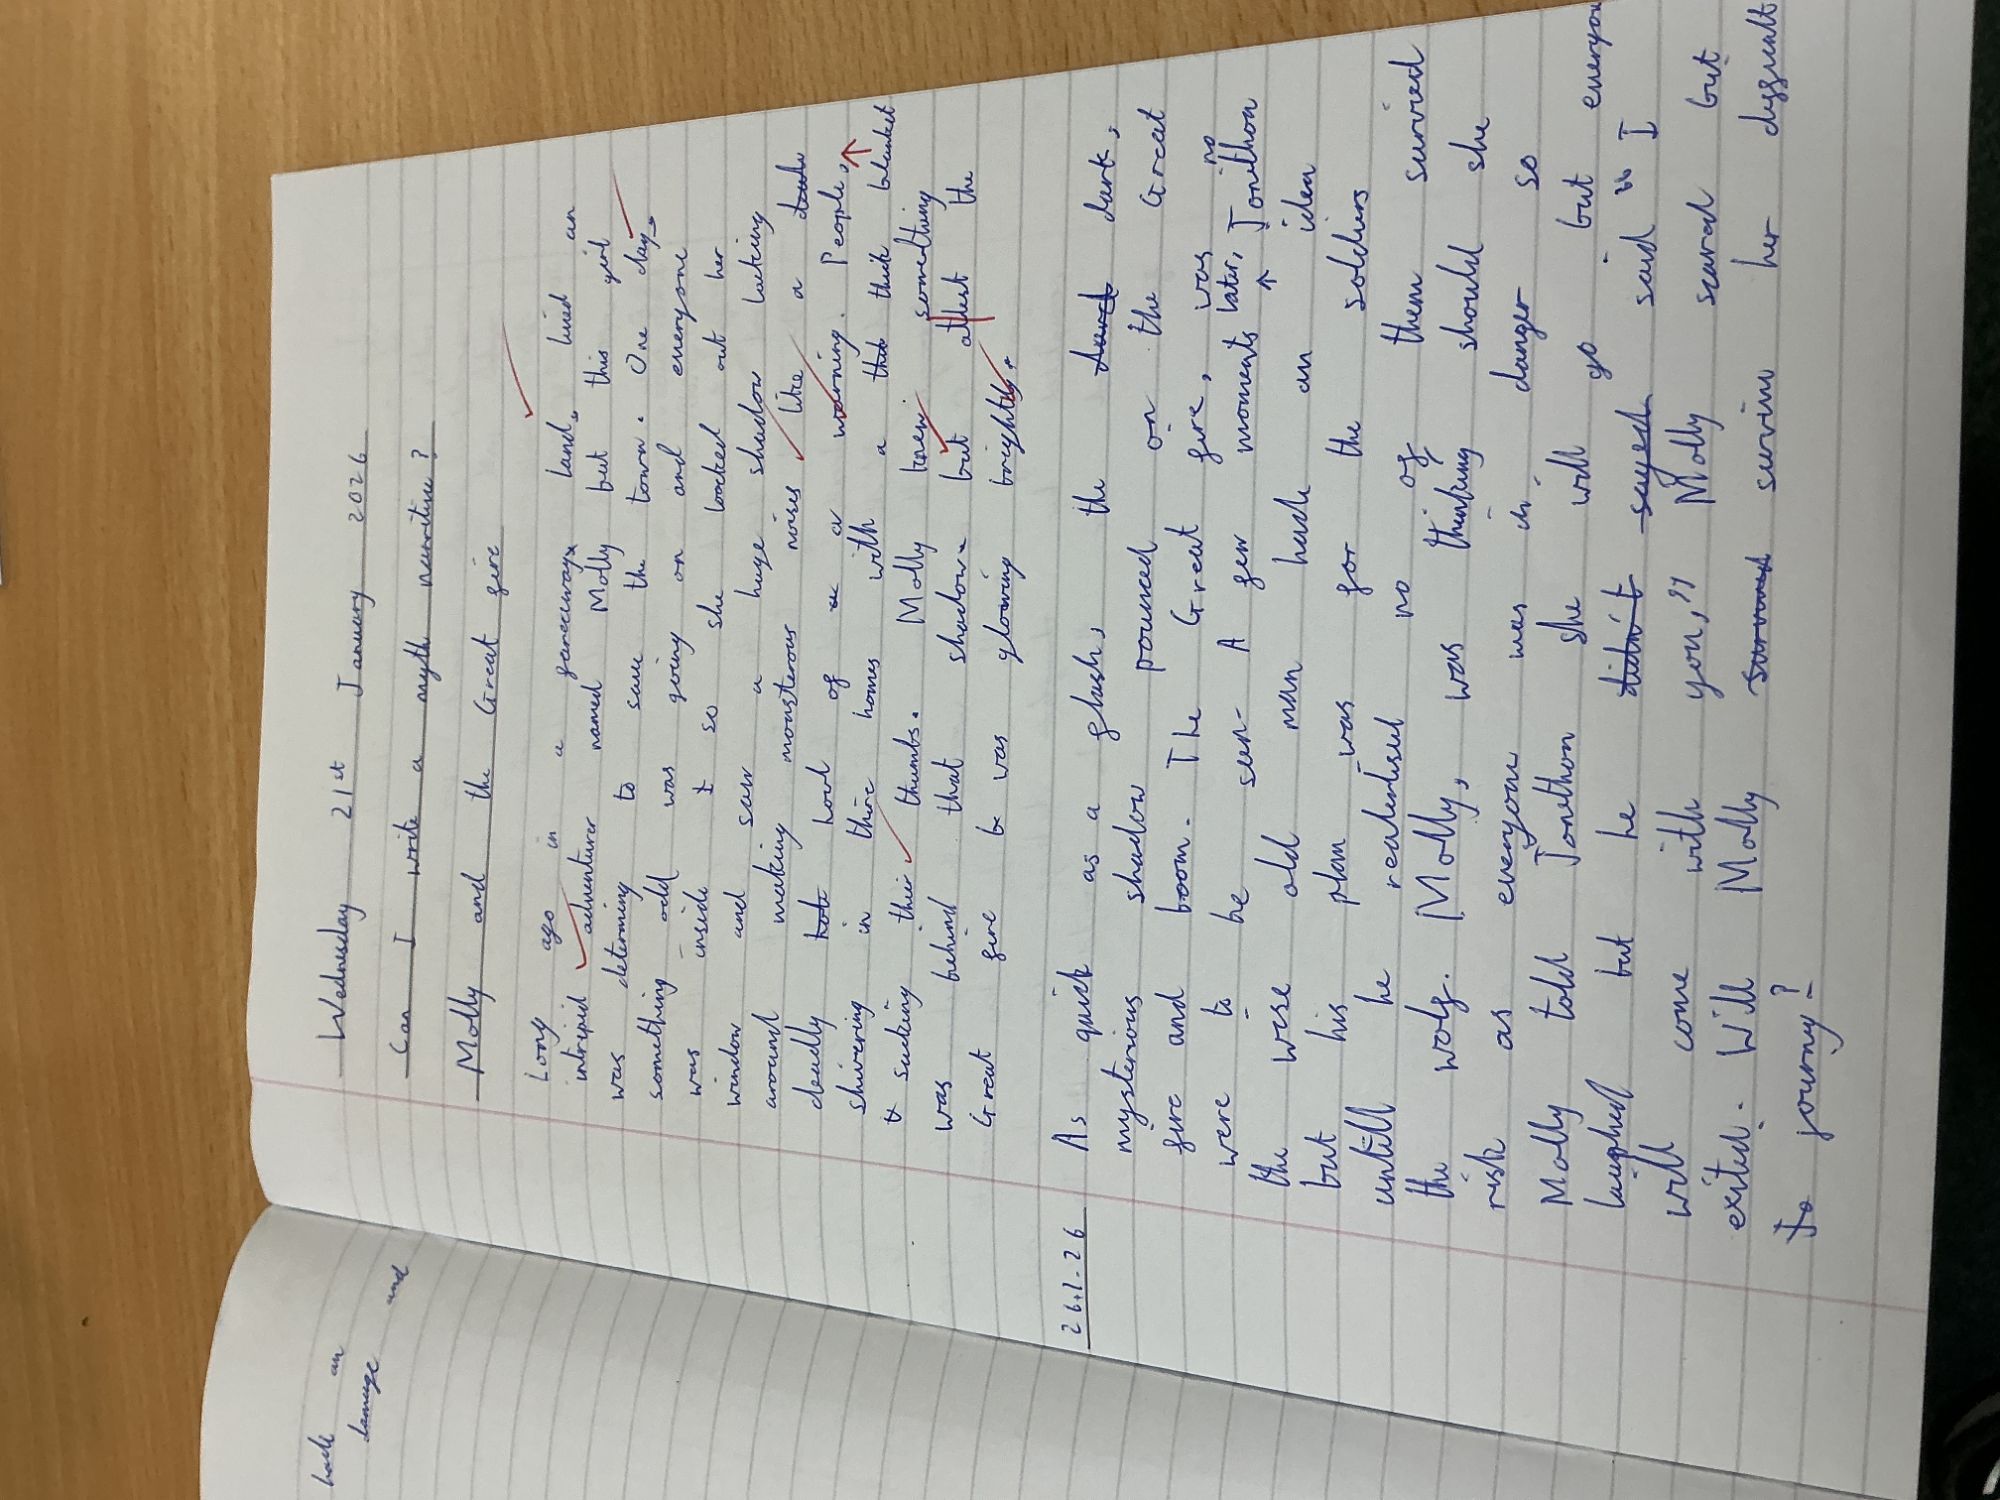 had an
damage and
Wednesday 21st January 2026
Can I write a myth narritive?
Molly and the Great fire
Long ago in a fareaway land, lived an
intripid adventurer named Molly but this girl
was determining to save the town. One day,
something odd was going on and everyone
was inside so she looked out her
window and saw a huge shadow lurking
around making monsterous noises like a
deadly howl of a warning. People,
shivering in thire homes with a thick blanket
sucking their thumbs. Molly knew something
was behind that shadow but atlest the
Great fire was glowing brightly.
26.1.26
As quick as a flash, the dark,
mysterious shadow pounced on the Great
fire and boom. The Great fire, was no
were to be seen. A few moments later, Jonithon
the wise old man had an idea
but his plan was for the soldiers
untill he realedised no of them survived
the wolf. Molly, was thinking should she
risk as everyone was in danger so
Molly told Jonethon she will go but everyon
laughed but he said "I
will come with you," Molly scared but
exited. Will Molly survim her difficult
to journy?